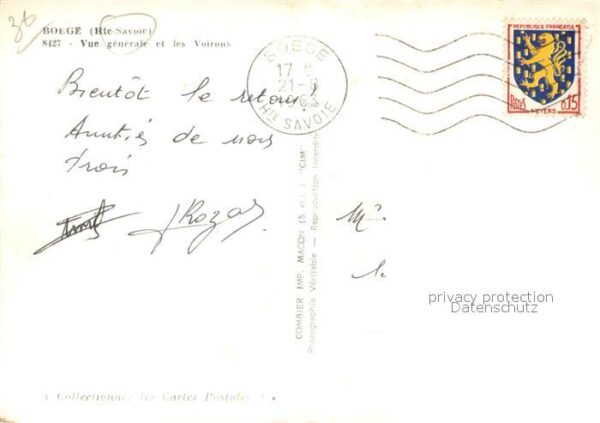 36
BOEGE (Hte-Savoie)
8427 - Vue générale et les Voirons
Bientôt le retour !
Amitiés de nous
trois
JRozar
BOEGE
17 H
21 - 8
HTE SAVOIE
REPUBLIQUE FRANÇAISE
POSTES
0,15
NEVERS
COMBIER IMP. MACON (S.-et-L.) "CIM"
Photographie Véritable — Reproduction Interdite
Mr
le
privacy protection
Datenschutz
« Collectionnez les Cartes Postales »